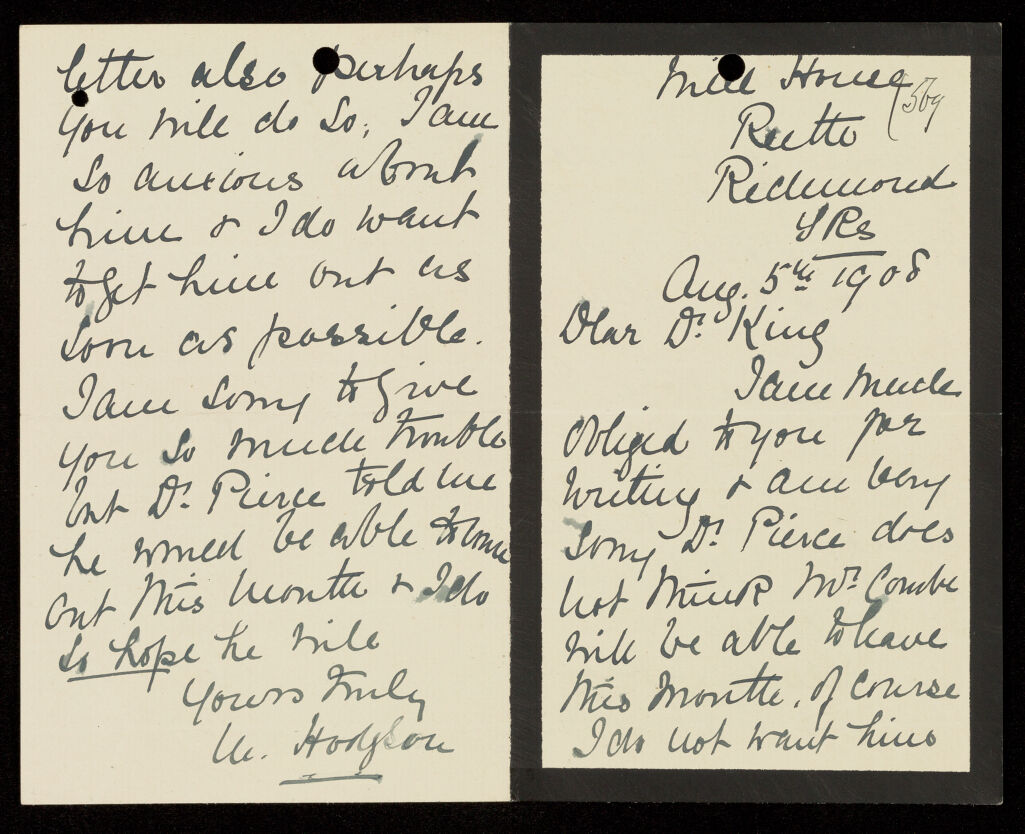 Mill House
(569
Reeth
Richmond
YRs
Aug. 5th 1908
Dear Dr King
I am much
obliged to you for
writing & am very
sorry Dr Pierce does
not think Mr Combe
will be able to leave
this month. Of course
I do not want him
letter also perhaps
you will do so, I am
so anxious about
him & I do want
to get him out as
soon as possible.
I am sorry to give
you so much trouble
but Dr Pierce told me
he would be able to come
out this month & I do
so hope he will
Yours truly
M. Hodgson